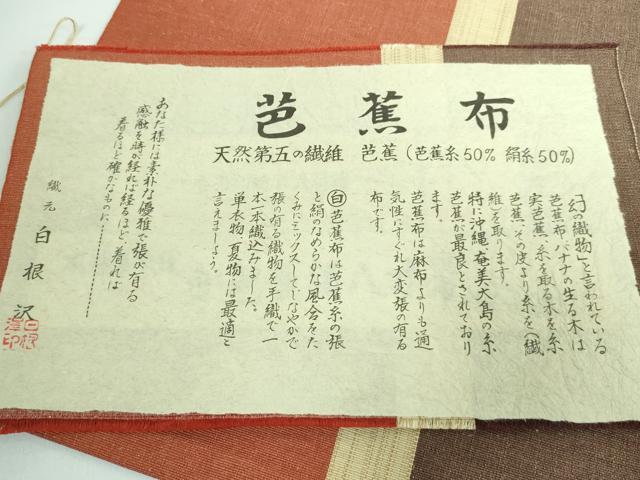 芭蕉布
天然第五の繊維 芭蕉(芭蕉糸50% 絹糸50%)
「幻の織物」と言われている
芭蕉布、バナナの生る木は
実芭蕉、糸を取る木を糸
芭蕉、その皮より糸を(繊
維)を取ります。
特に沖縄、奄美大島の糸
芭蕉が最良とされており
ます。
芭蕉布は麻布よりも通
気性にすぐれ大変張の有る
布です。
白芭蕉布は芭蕉糸の張
と絹のなめらかな風合をた
くみにミックスしてしなやかで
張の有る織物を手織で一
本一本織込みました。
単衣物、夏物には最適と
言えましょう。
あなた様には素朴な優雅で張が有る
感触を時が経れば経るほど、着れば
着るほど確かなものに
織元 白根沢